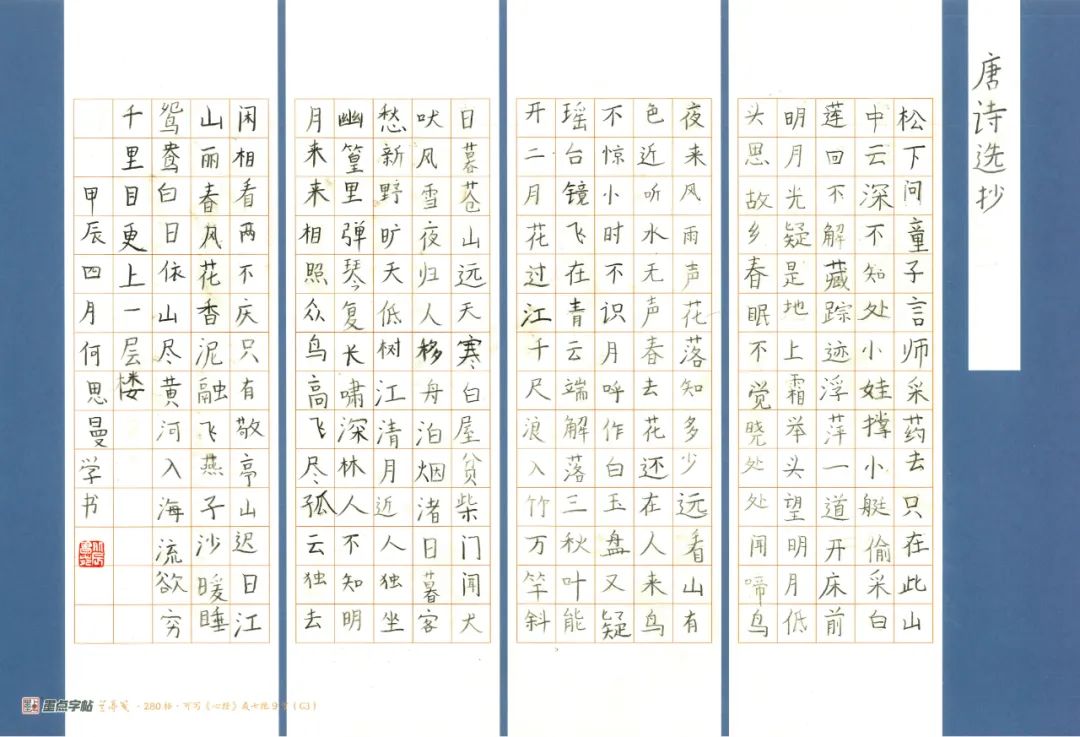 唐诗选抄
松下问童子言师采药去只在此山
中云深不知处小娃撑小艇偷采白
莲回不解藏踪迹浮萍一道开床前
明月光疑是地上霜举头望明月低
头思故乡春眠不觉晓处处闻啼鸟
夜来风雨声花落知多少远看山有
色近听水无声春去花还在人来鸟
不惊小时不识月呼作白玉盘又疑
瑶台镜飞在青云端解落三秋叶能
开二月花过江千尺浪入竹万竿斜
日暮苍山远天寒白屋贫柴门闻犬
吠风雪夜归人移舟泊烟渚日暮客
愁新野旷天低树江清月近人独坐
幽篁里弹琴复长啸深林人不知明
月来来相照众鸟高飞尽孤云独去
闲相看两不庆只有敬亭山迟日江
山丽春风花香泥融飞燕子沙暖睡
鸳鸯白日依山尽黄河入海流欲穷
千里目更上一层楼
甲辰四月何思曼学书
墨点字帖 ·280格·可写《心经》或七绝9首(G3)